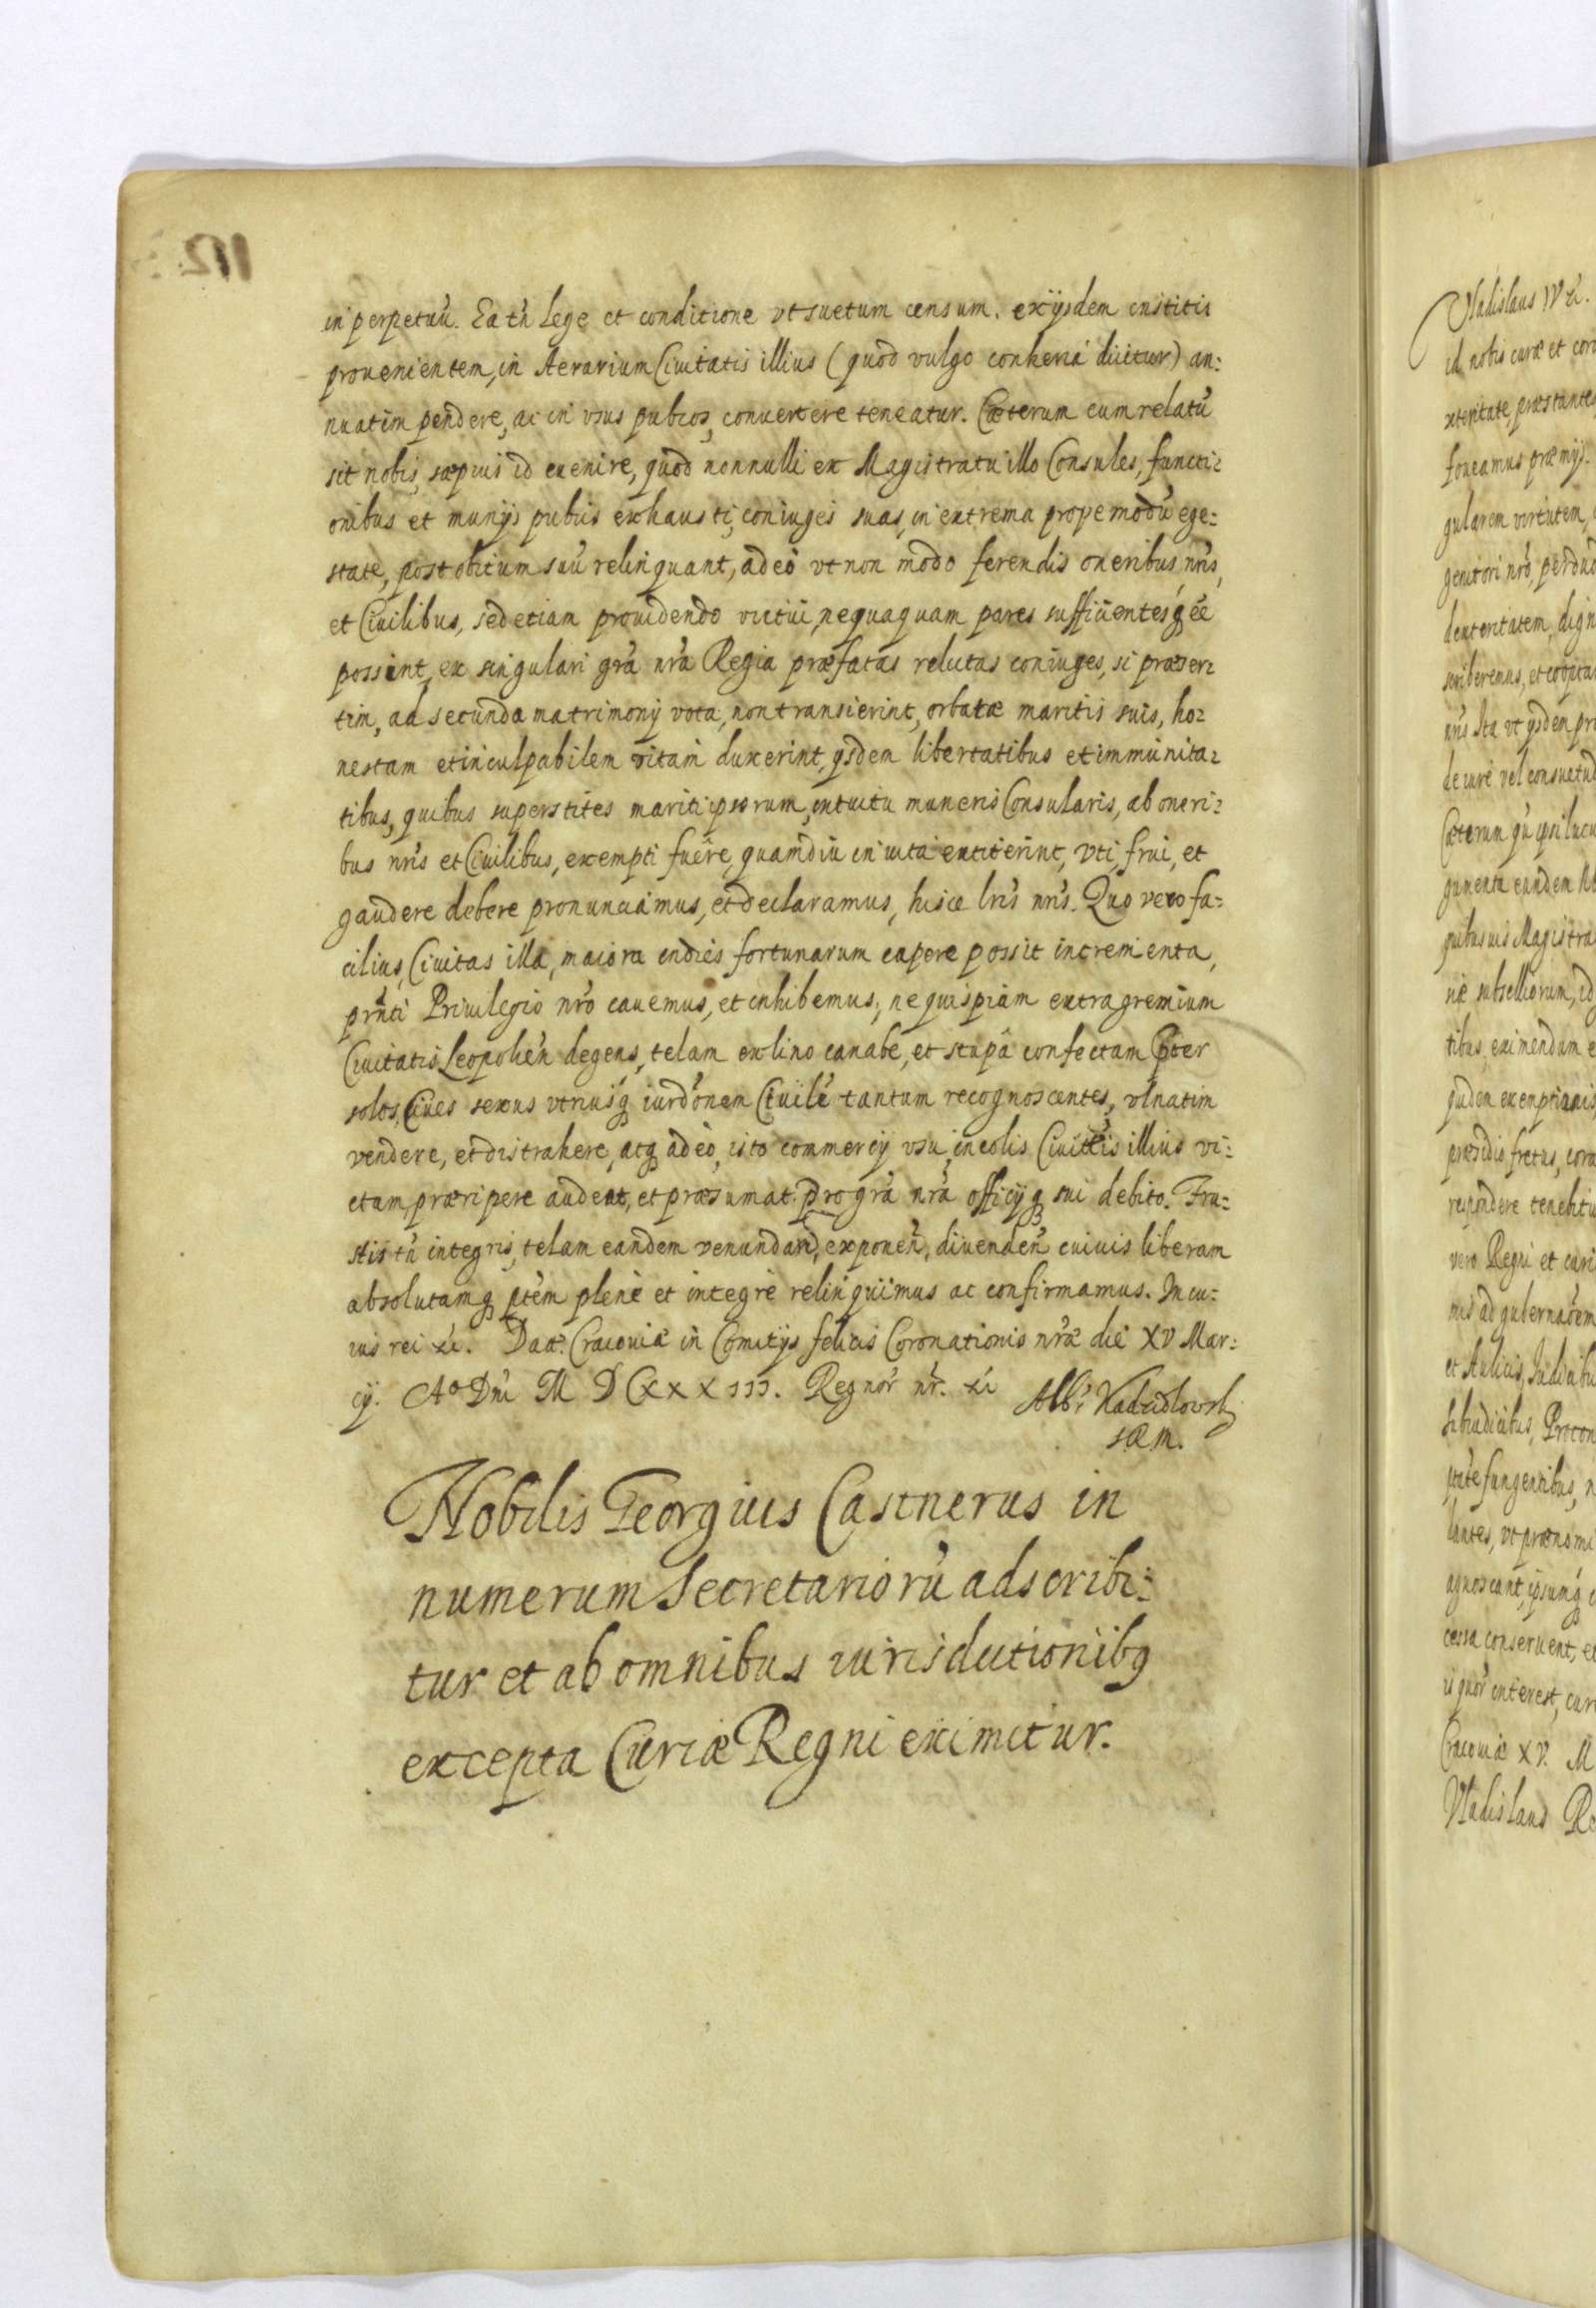 in perpetuū. Ea tn̄ Lege et conditione vt suetum censum, ex ijsdem institis
prouenientem, in Aerarium Ciuitatis illius (quod vulgo conheria dicitur) an:
nuatim pendere, ac in vsus pubcos, conuertere teneatur. Cæterum cum relatū
sit nobis, sæpius id euenire, quod nonnulli ex Magistratu illo Consules, functi:
onibus et munijs pubcis exhausti, coniuges suas, in extrema propemodū ege:
state, post obitum suū relinquant, adeo vt non modo ferendis oneribus nr̄is,
et Ciuilibus, sed etiam prouidendo victui, nequaquam pares sufficientesq3 ēē
possint, ex singulari gr̄a nr̄a Regia præfatas relictas coniuges, si præser:
tim, ad secunda matrimonij vota, non transierint, orbatæ maritis suis, ho:
nestam et inculpabilem vitam duxerint, ijsdem libertatibus et immunita:
tibus, quibus superstites mariti ipsorum, intuitu muneris Consularis, ab oneri:
bus nr̄is et Ciuilibus, exempti fuêre, quamdiu in uita extiterint, vti, frui, et
gaudere debere pronunciamus, et declaramus, hisce lr̄is nr̄is. Quo vero fa:
cilius, Ciuitas illa, maiora indies fortunarum capere possit incrementa,
prn̄ti Priuilegio nr̄o cauemus, et inhibemus, ne quispiam extra gremium
Ciuitatis Leopolien̄ degens, telam ex lino canabe, et stupâ confectam Pter
solos, Ciues sexus vtriusq3 iurd̄onem Ciuilē tantum recognoscentes, vlnatim
vendere, et distrahere, atq3 adeò, isto commercij vsu, incolis Ciuitt̄is illius vi:
ctam præripere audeat, et præsumat. Pro gr̄a nr̄a officijq3 sui debito. Fru:
stis tn̄ integris, telam eandem venundand, exponen̄, diuenden̄ cuiuis liberam
absolutamq3 ptēm plenè et integrè relinquimus ac confirmamus. In cu:
ius rei &c. Daā. Cracouiæ in Comitijs felicis Coronationis nr̄æ die XV Mar:
cij. Ao Dni M D C X X X III. Regnor̄ nr̄. &c Albr̄ Kadzidlowsky
sæ m.
Nobilis Georgius Castnerus in
numerum Secretariorū adscribi:
tur et ab omnibus iurisdictionibq
excepta Curiæ Regni eximitur.
Vladislaus IV &c.
id nobis curæ et cor
xteritate, præstantes
foueamus præmijs.
gularem virtutem,
genitori nr̄o, perduo
dexteritatem, dign
scriberemus, et coopta
nr̄is Ita vt ijsdem pr
de iure vel consuetud
Cæterum
gumenta eandem No
quibusuis Magistra
niæ subselliorum, id
tibus, eximendum e
quidem exemptionis
præsidio fretus, cora
respondere tenebitu
vero Regni et curi
et Aulicis, Judicibu
Subiudicibus, Procon
ptāte fungentibus, n
lantes, vt prænomi
agnoscant, ipsumq3
cessa conseruent, et
is quor̄ interest, cur
Cracouiæ XV. M
Vladislaus Re